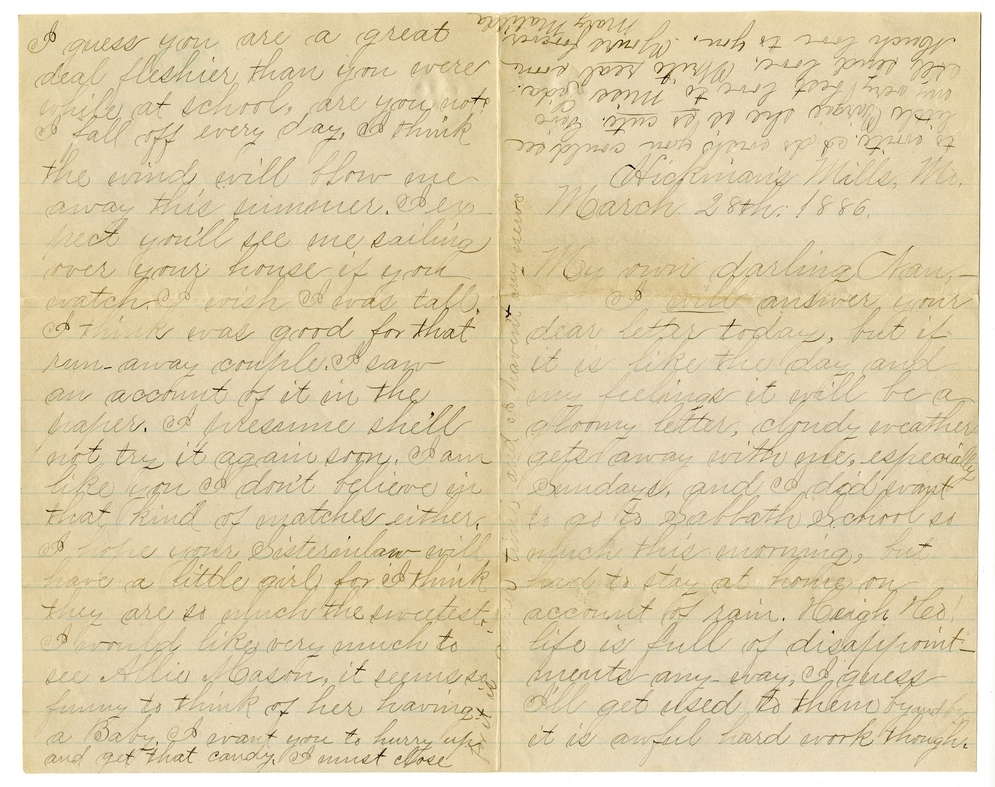 Hickman's Mills, Mo.
March 28th. 1886.
My own darling Nan,—
I will answer your
dear letter today, but if
it is like the day and
my feelings it will be a
gloomy letter, cloudy weather
gets away with me, especially
Sundays, and I did want
to go to Sabbath School so
much this morning, but
had to stay at home on
account of rain. Heigh Ho!
life is full of disappoint-
ments any-way, I guess
I'll get used to them by and by
it is awful hard work though.
I guess you are a great
deal fleshier than you were
while at school, are you not?
I fall off every day, I think
the wind will blow me
away this summer. I ex-
pect you'll see me sailing
over your house if you
watch. I wish I was tall.
I think was good for that
run-away couple. I saw
an account of it in the
paper. I presume she'll
not try it again soon. I am
like you I don't believe in
that kind of matches either.
I hope your Sisterinlaw will
have a little girl for I think
they are so much the sweetest.
I would like very much to
see Allie Mason, it seems so
funny to think of her having
a Baby. I want you to hurry up
and get that candy. I must close
and I haven't any news
to write. I do wish you could see
little she is so cute. Give
my very best love to Miss Ada.
All send love. Write real soon
Much love to you. Yours forever
Mary Matilda